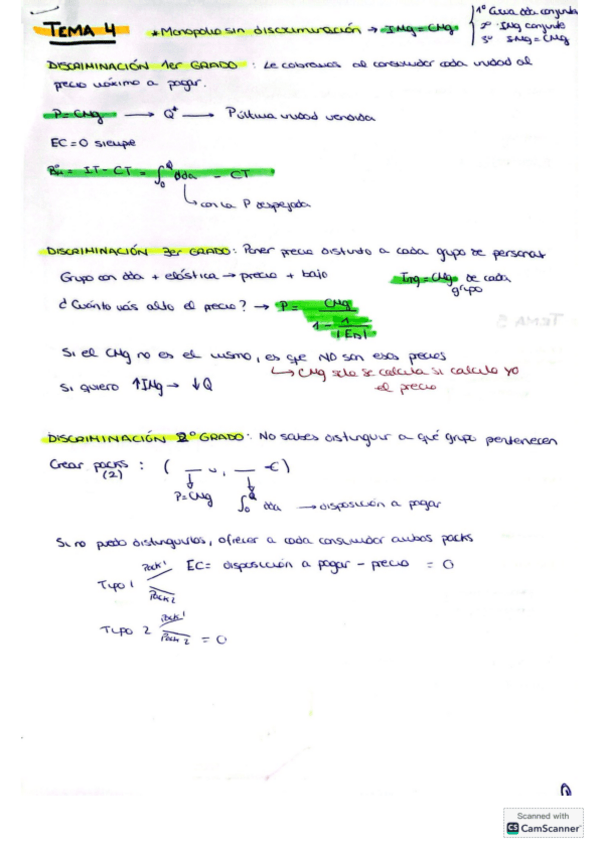 TEMA 4
* Monopolio sin discriminación → IMg = CMg
1º Curva dda conjunta
2º IMg conjunto
3º IMg = CMg
DISCRIMINACIÓN 1er GRADO: Le cobramos al consumidor cada unidad al
precio máximo a pagar.
P = CMg → Q* → P última unidad vendida
EC = 0 siempre
= IT - CT = ∫₀^Q dda - CT
con la P despejada
DISCRIMINACIÓN 3er GRADO: Poner precio distinto a cada grupo de personas
Grupo con dda + elástica → precio + bajo
Img = CMg de cada
grupo
¿Cuánto más alto el precio? → P = CMg
1 - 1
|ED|
Si el CMg no es el mismo, es que NO son esos precios
↳ CMg solo se calcula si calculo yo
el precio
Si quiero ↑IMg → ↓Q
DISCRIMINACIÓN 2º GRADO: No sabes distinguir a qué grupo pertenecen
Crear packs: ( __ u, __ €)
(2)
P = CMg ∫₀^Q dda → disposición a pagar
Si no puedo distinguirlos, ofrecer a cada consumidor ambos packs
Pack 1 EC = disposición a pagar - precio = 0
Tipo 1
Pack 2
Pack 1
Tipo 2
Pack 2 = 0
Scanned with
CS CamScanner